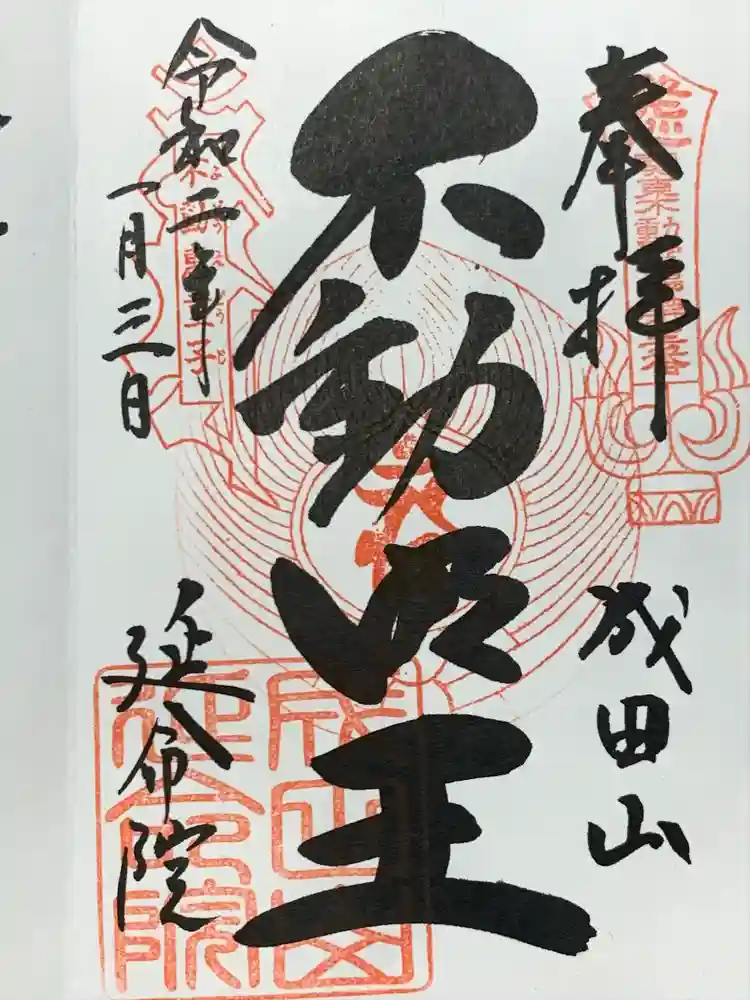 奉拝
成田山
不動明王
令和二年
一月三日
延命院
成田山
延命院